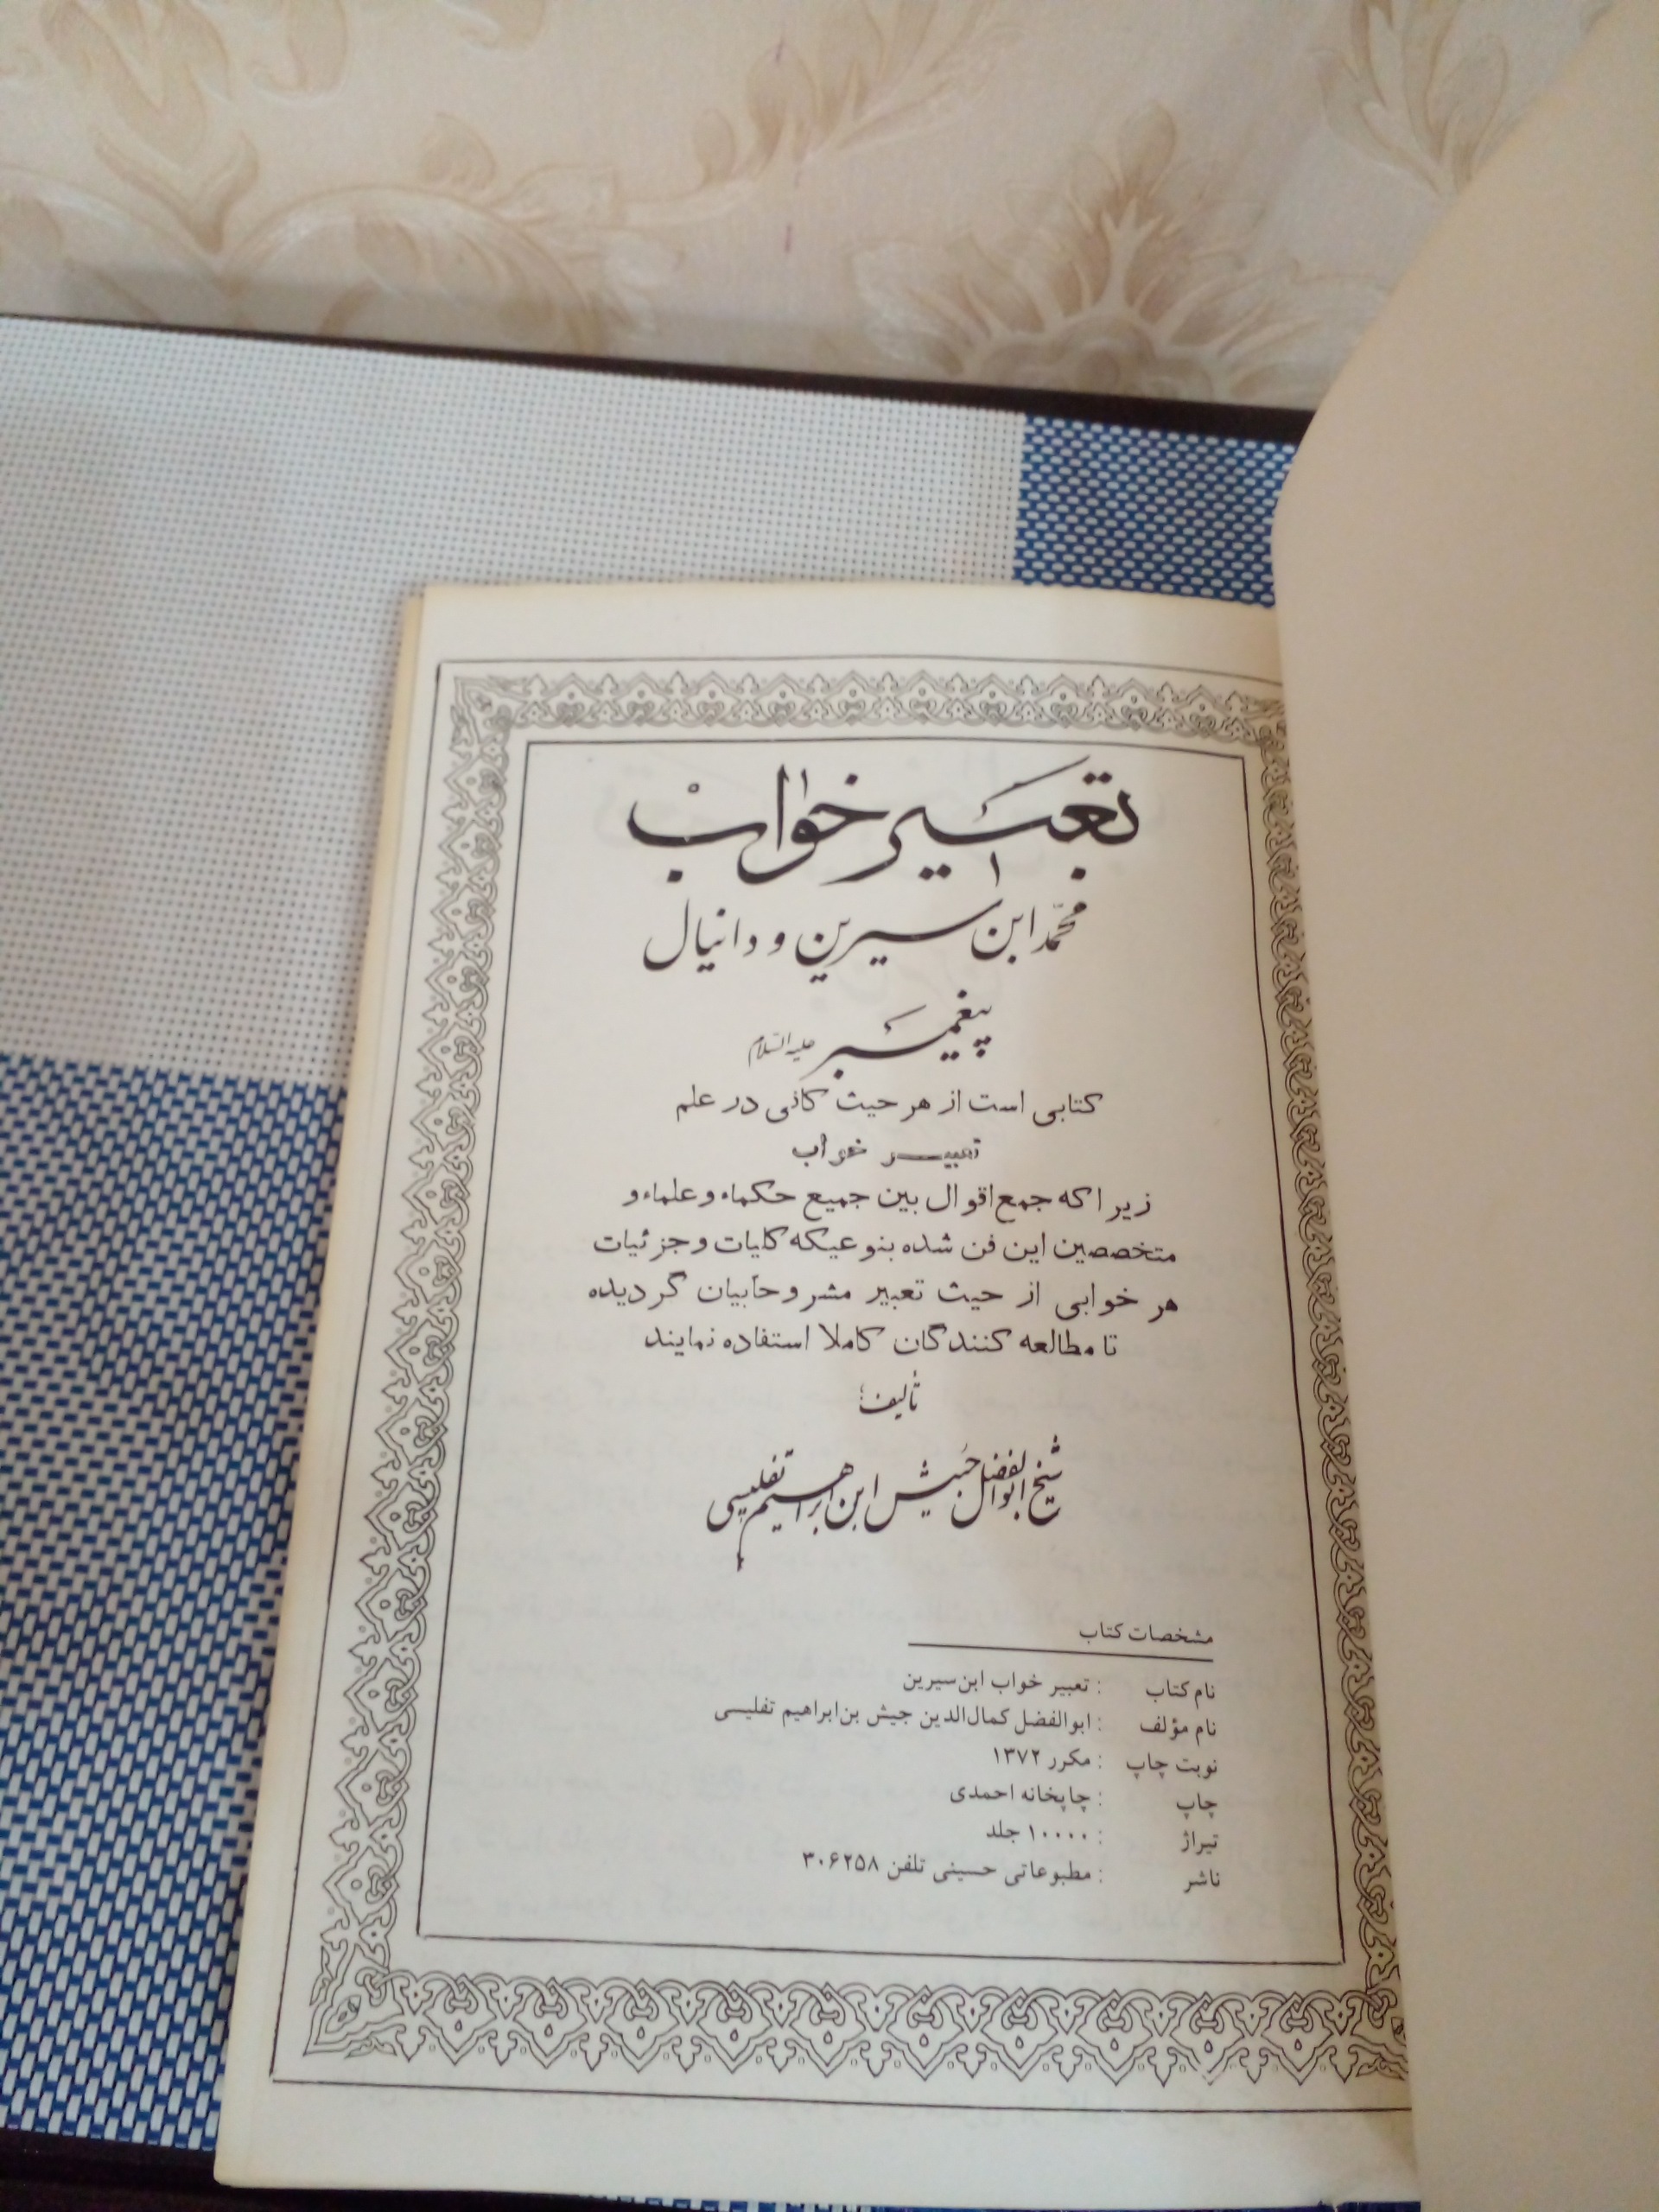 تعبیر خواب
محمّد ابن سیرین و دانیال
پیغمبر علیه السّلام
کتابی است از هر حیث کافی در علم
تعبیر خواب
زیرا که جمع اقوال بین جمیع حکماء و علماء و
متخصصین این فن شده بنوعیکه کلیات و جزئیات
هر خوابی از حیث تعبیر مشروحاً بیان گردیده
تا مطالعه کنندگان کاملا استفاده نمایند
تألیف:
شیخ ابوالفضل حبیش ابن ابراهیم تفلیسی
مشخصات کتاب
نام کتاب : تعبیر خواب ابن‌سیرین
نام مؤلف : ابوالفضل کمال‌الدین جیش بن‌ابراهیم تفلیسی
نوبت چاپ : مکرر ۱۳۷۲
چاپ : چاپخانه احمدی
تیراژ : ۱۰۰۰۰ جلد
ناشر : مطبوعاتی حسینی تلفن ۳۰۶۲۵۸